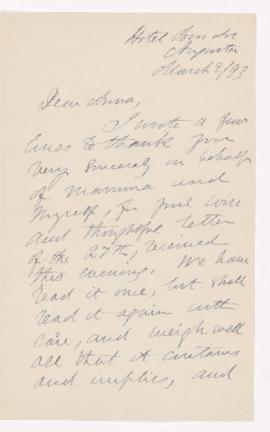 Hotel Bon Air
Augusta
March 2/93
Dear Anna,
I write a few
lines to thank you
very sincerely on behalf
of Mamma and
myself, for your wise
and thoughtful letter
of the 27th, received
this evening. We have
read it once, but shall
read it again with
care, and weigh well
all that it contains
and implies, and